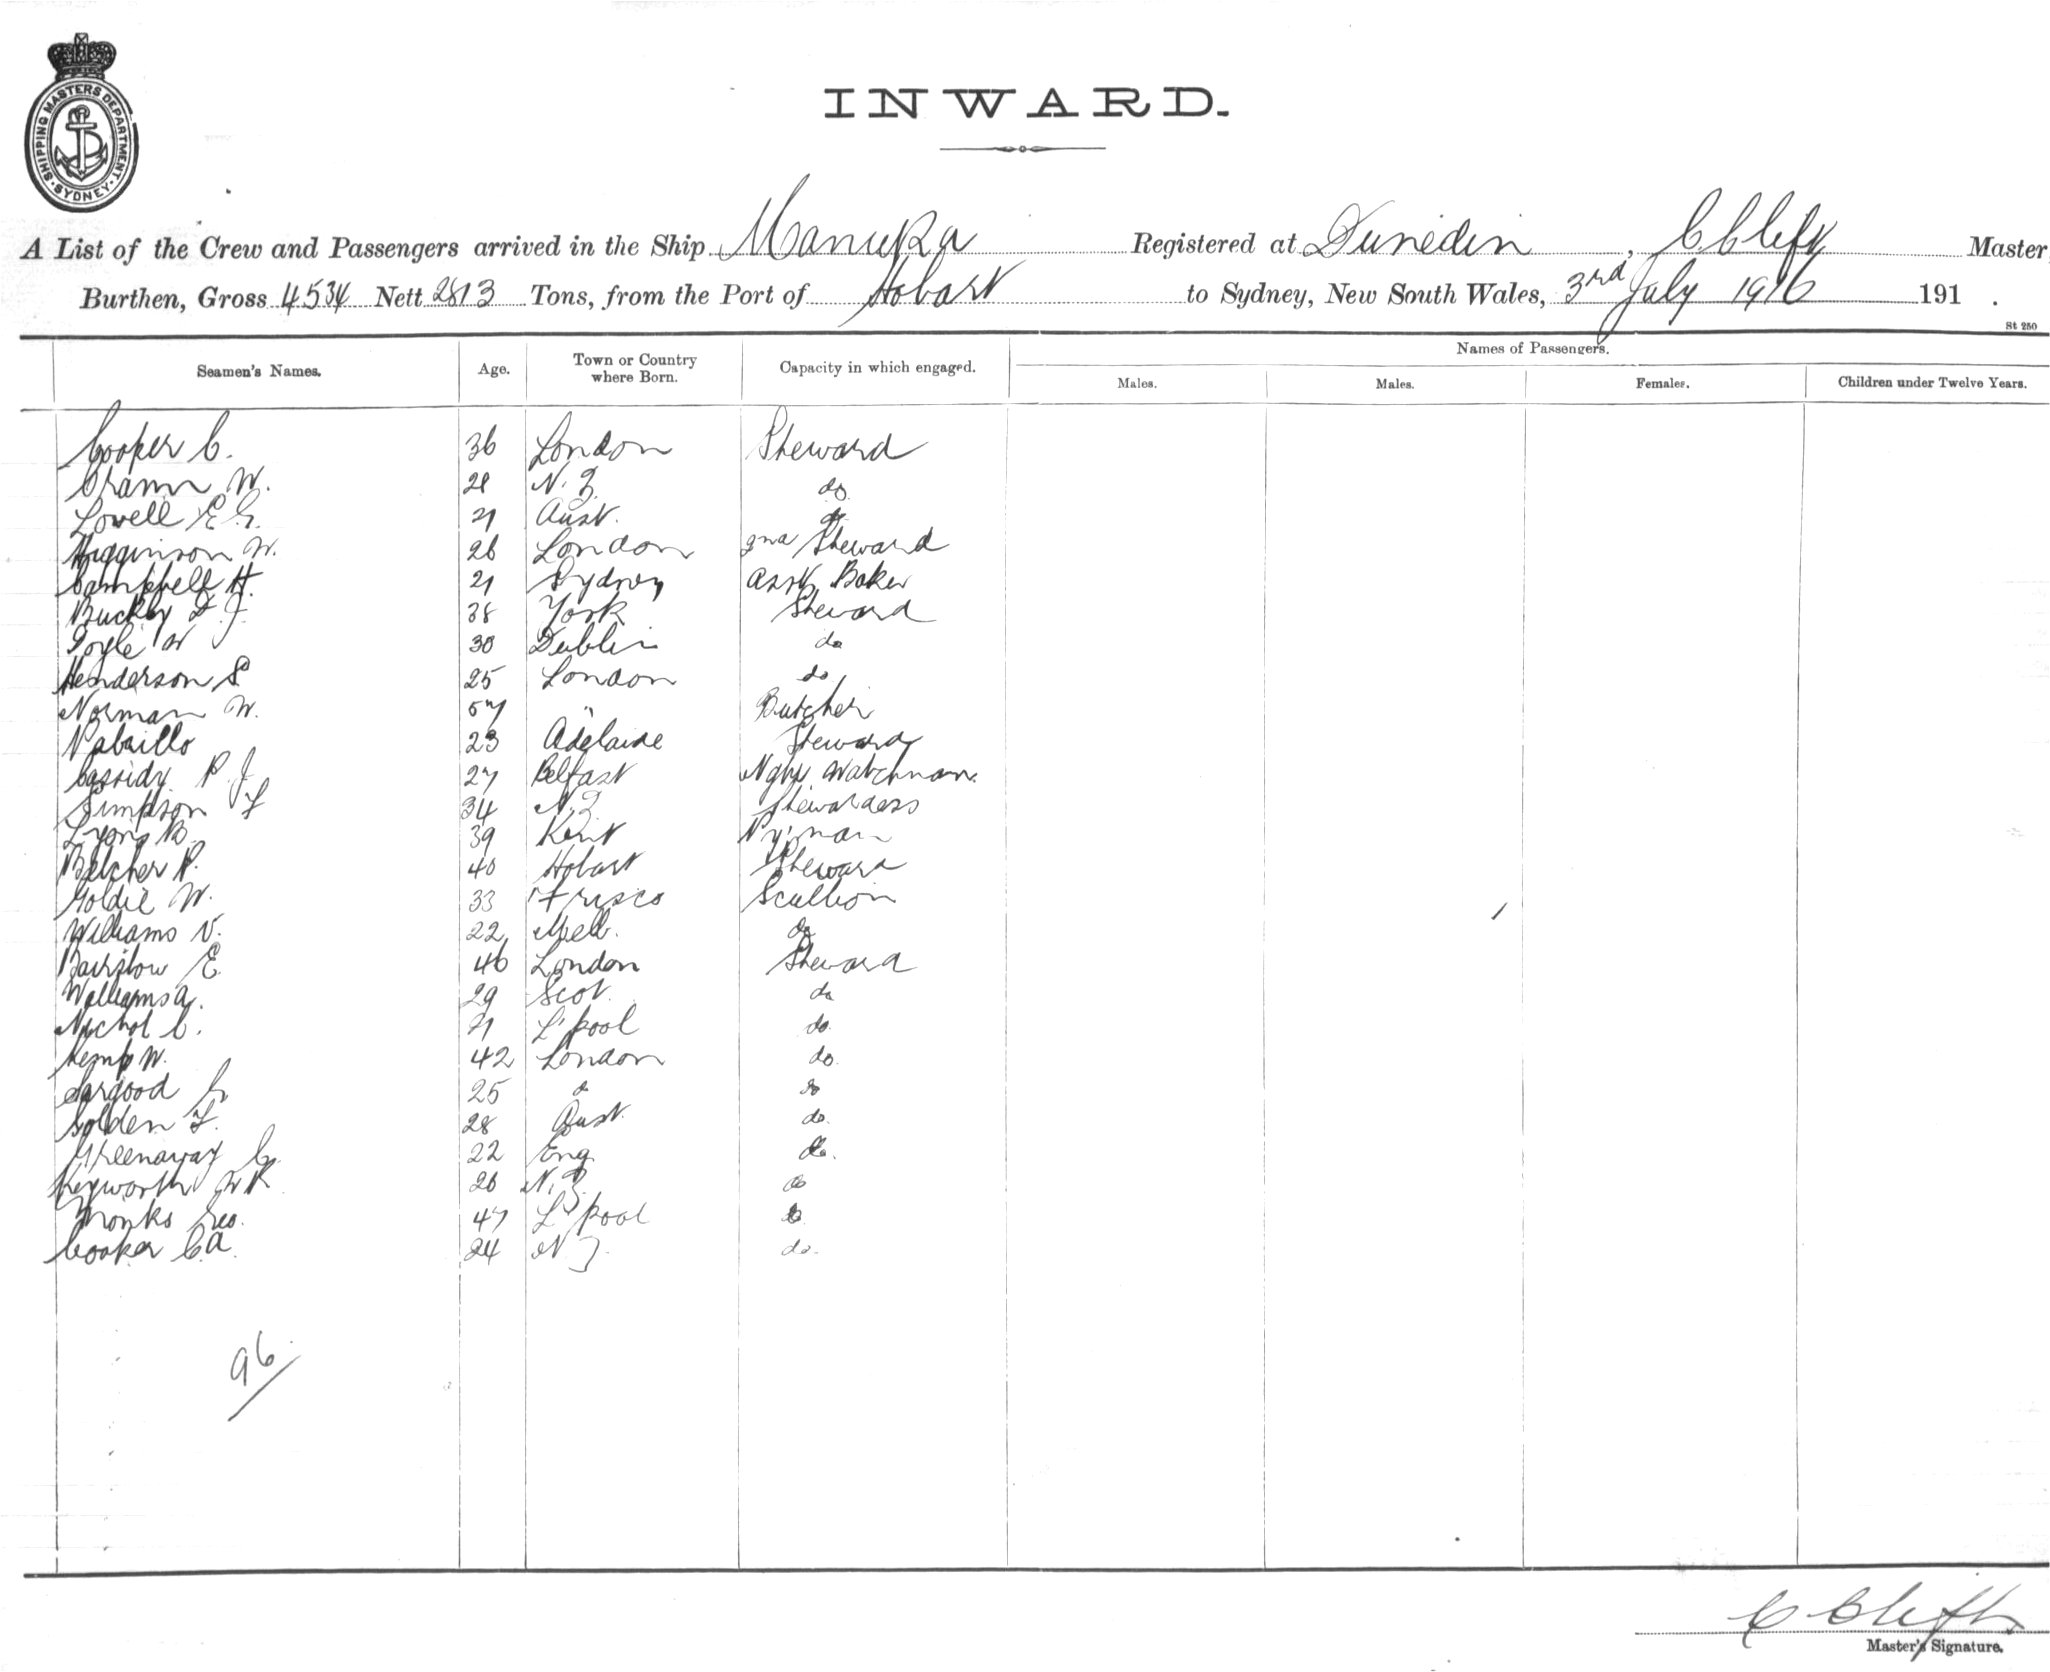 SHIPPING MASTERS DEPARTMENT. SYDNEY
INWARD.
A List of the Crew and Passengers arrived in the Ship Manuka Registered at Dunedin, C Clift Master
Burthen, Gross 4534 Nett 2813 Tons, from the Port of Hobart to Sydney, New South Wales, 3rd July 1916 191 .
St 250
Seamen's Names. Age. Town or Country where Born. Capacity in which engaged. Names of Passengers.
Males. Males. Females. Children under Twelve Years.
Cooper C. 36 London Steward
W. N.Z do
Lovell E G. 21 Aust. do
Higginson W. 26 London 2nd Steward
Campbell H. 21 Sydney Asst Baker
Buckley J. 38 York Steward
Doyle W 30 Dublin do
Henderson S 25 London do
Norman W. 57 " Butcher
23 Adelaide Steward
Cassidy P. J 27 Belfast Nght Watchman
Simpson 34 N.Z Stewardess
Lyons B. 39 Kent P'y'man
Belcher P. 40 Hobart Steward
Goldie W. 33 'Frisco Scullion
Williams V. 22 Melb. do
Bairstow E. 46 London Steward
Williams A. 29 Scot. do
Nichol C. 21 L'pool do
Kemp W. 42 London do
Sargood G 25 " do
Golden F. 28 Aust. do.
Greenaway G. 22 Eng do.
Keyworth W R 26 N.Z. do
Monks Geo. 47 L'pool do
Cooker C.A. 24 N Z. do.
96
C Clift
Master's Signature.